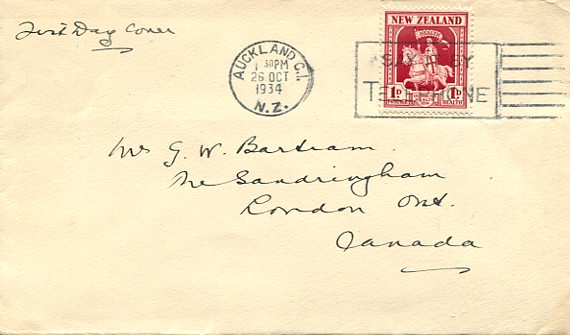 First Day Cover
AUCKLAND C.1.
1 30PM
26 OCT
1934
N.Z.
NEW ZEALAND
1D 1D
POSTAGE HEALTH
SAY IT BY
TELEPHONE
Mrs G. W. Bartram.
The Sandringham
London Ont.
Canada